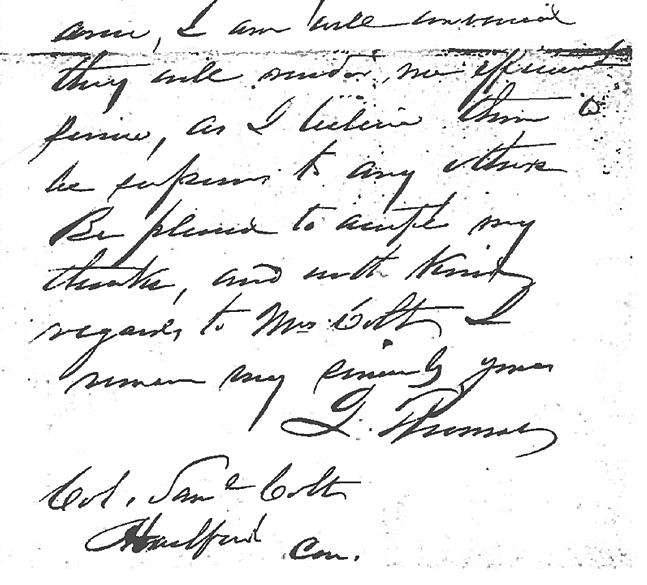 arise, I am well convinced
they will render me efficient
service, as I believe them to
be superior to any others
Be pleased to accept my
thanks, and with kind
regards to Mrs Colt, I
remain very sincerely yours
L. Thomas
Col. Saml Colt
Hartford Con.